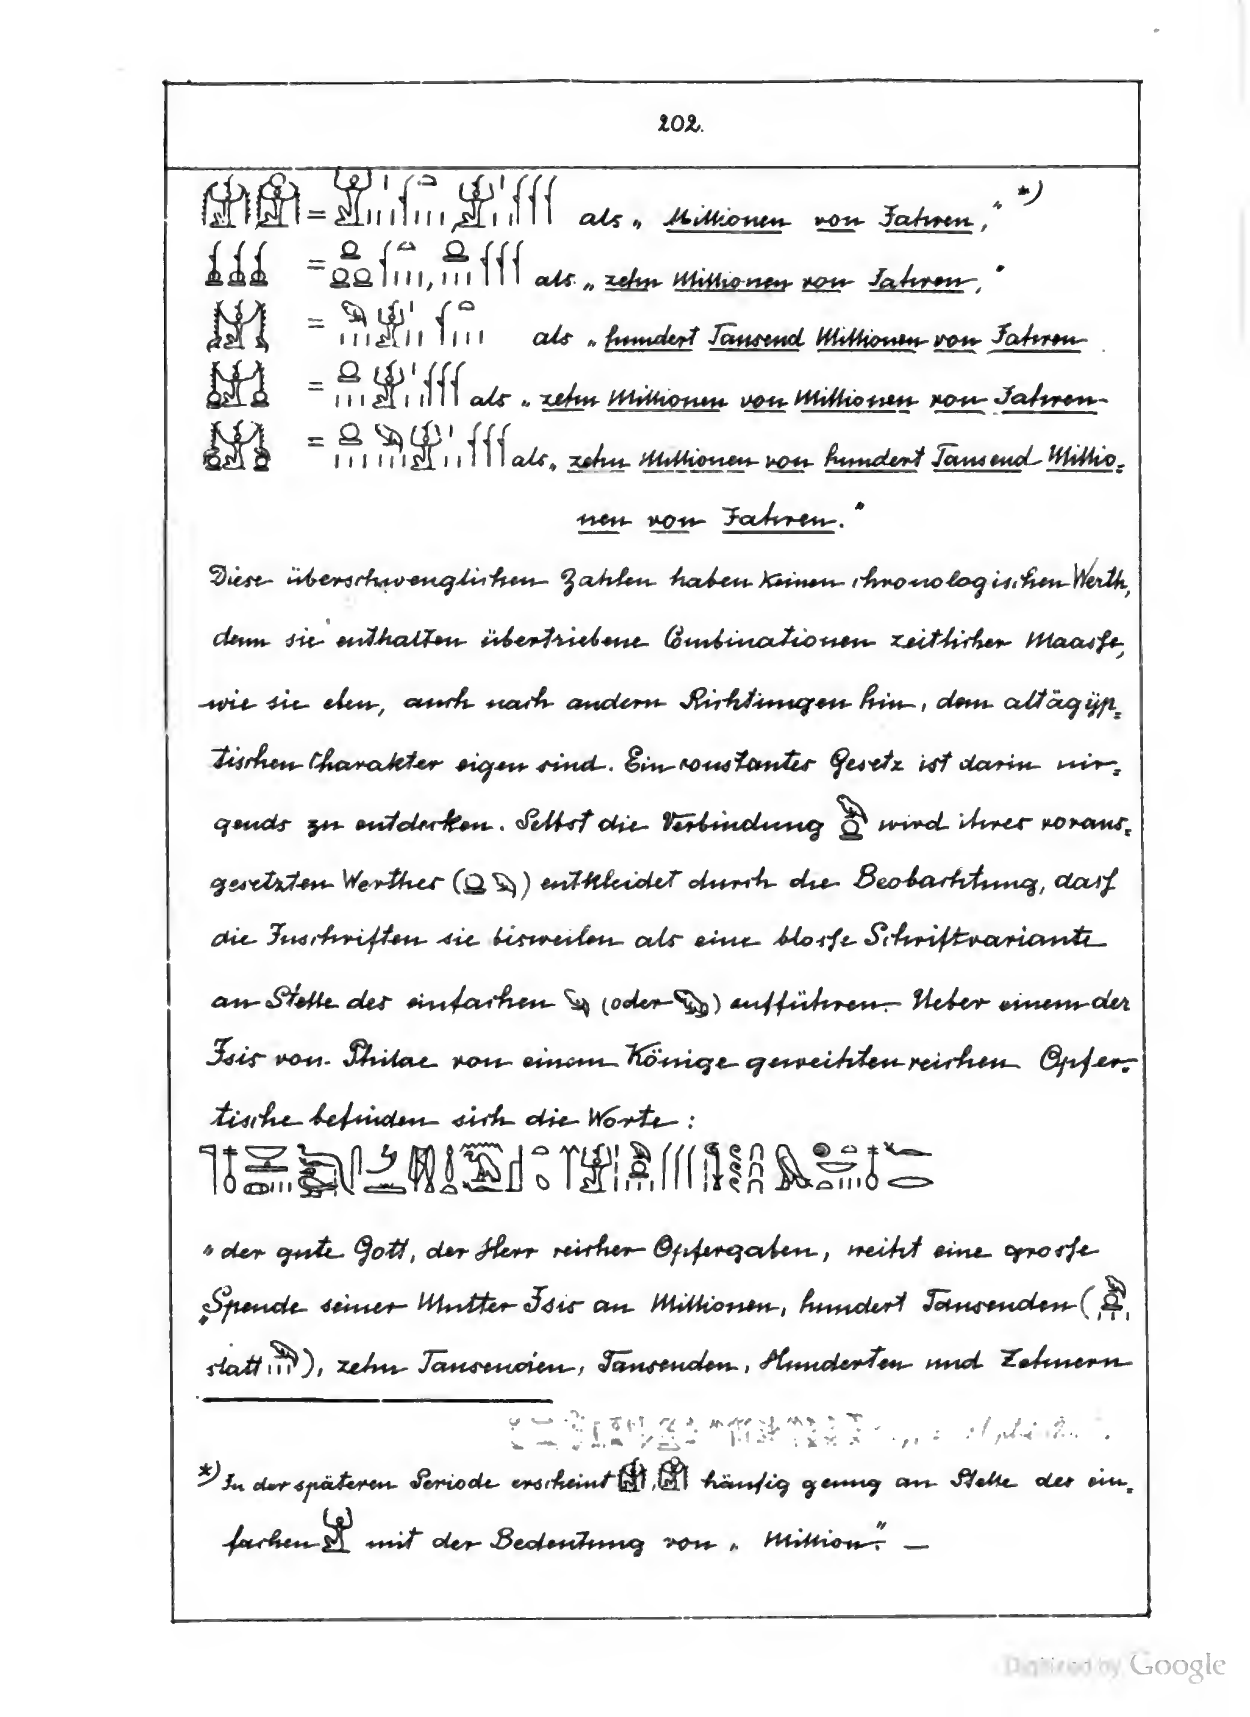 202.
= , als „Millionen von Jahren,“ *)
= , als „zehn Millionen von Jahren,“
= als „hundert Tausend Millionen von Jahren
= als „zehn Millionen von Millionen von Jahren
= als „zehn Millionen von hundert Tausend Millio-
nen von Jahren.“
Diese überschwenglichen Zahlen haben keinen chronologischen Werth,
denn sie enthalten übertriebene Combinationen zeitlicher Maasse,
wie sie eben, auch nach andern Richtungen hin, dem altägyp-
tischen Charakter eigen sind. Ein constantes Gesetz ist darin nir-
gends zu entdecken. Selbst die Verbindung wird ihres voraus-
gesetzten Werthes ( ) entkleidet durch die Beobachtung, dass
die Inschriften sie bisweilen als eine blosse Schriftvariante
an Stelle des einfachen (oder ) aufführen. Ueber einem der
Isis von Philae von einem Könige geweihten reichen Opfer-
tische befinden sich die Worte:
„der gute Gott, der Herr reicher Opfergaben, weiht eine grosse
„Spende seiner Mutter Isis an Millionen, hundert Tausenden (
statt ), zehn Tausenden, Tausenden, Hunderten und Zehnern
*) In der späteren Periode erscheint , häufig genug an Stelle des ein-
fachen mit der Bedeutung von „Million“. —
Digitized by Google